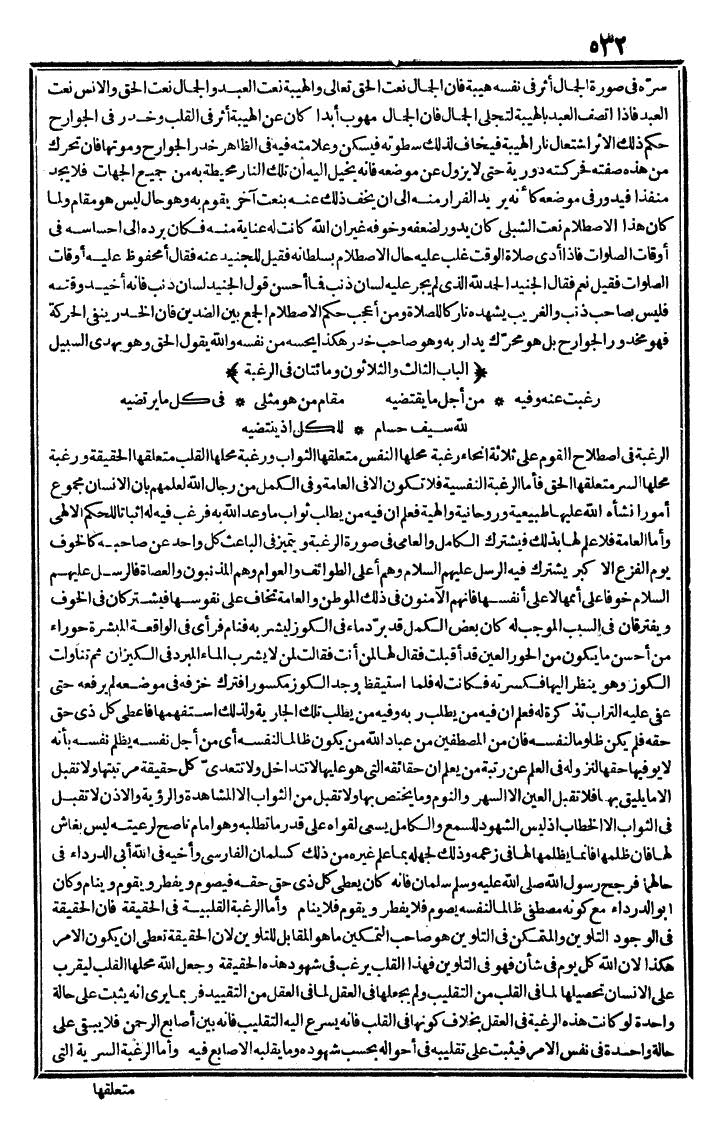 ٥٣٢
سرّه فى صورة الجال أثر فى نفسه هيبة فان الجال نعت الحق تعالى والهيبة نعت العبد والجال نعت الحق والانس نعت
العبد فاذا اتصف العبد بالهيبة لتجلى الجال فان الجال مهوب أبدا كان عن الهيبة أثر فى القلب وخدر فى الجوارح
حكم ذلك الاثر اشتعال نار الهيبة فيخاف لذلك سطوته فيسكن وعلامته فيه فى الظاهر خدر الجوارح وموتها فان تحرك
من هذه صفته فحركته دورية حتى لا يزول عن موضعه فانه يخيل اليه أن تلك النار محيطة به من جميع الجهات فلا يجد
منفذا فيدور فى موضعه كأنه يريد الفرار منه الى ان يخف ذلك عنه بنعت آخر يقوم به وهو حال ليس هو مقام ولما
كان هذا الاصطلام نعت الشبلى كان يدور لضعفه وخوفه غير ان الله كانت له عناية منه فكان يرده الى احساسه فى
أوقات الصلوات فاذا أدى صلاة الوقت غلب عليه حال الاصطلام بسلطانه فقيل للجنيد عنه فقال أمحفوظ عليه أوقات
الصلوات فقيل نعم فقال الجنيد الحمد لله الذى لم يجر عليه لسان ذنب فا أحسن قول الجنيد لسان ذنب فانه أخيذ وقته
فليس بصاحب ذنب والغريب يشهده تاركا للصلاة ومن أعجب حكم الاصطلام الجمع بين الضدين فان الخدر ينفى الحركة
فهو مخدور الجوارح بل هو محرّك يدار به وهو صاحب خدر هكذا يحسه من نفسه والله يقول الحق وهو يهدى السبيل
﴿ الباب الثالث والثلاثون ومائتان فى الرغبة ﴾
رغبت عنه وفيه * من أجل ما يقتضيه مقام من هو مثلى * فى كل ما يرتضيه
لله سيف حسام * للكل اذ ينتضيه
الرغبة فى اصطلاح القوم على ثلاثة انحاء رغبة محلها النفس متعلقها الثواب ورغبة محلها القلب متعلقها الحقيقة ورغبة
محلها السر متعلقها الحق فأما الرغبة النفسية فلا تكون الا فى العامة وفى الكمل من رجال الله لعلمهم بان الانسان مجموع
أمور انشأه الله عليها طبيعية وروحانية والهية فعلم ان فيه من يطلب ثواب ما وعد الله به فرغب فيه له اثباتا للحكم الالهى
وأما العامة فلا علم لها بذلك فيشترك الكامل والعامى فى صورة الرغبة ويتميز فى الباعث كل واحد عن صاحبه كالخوف
يوم الفزع الاكبر يشترك فيه الرسل عليهم السلام وهم أعلى الطوائف والعوام وهم المذنبون والعصاة فالرسل عليهم
السلام خوفا على أممها لا على أنفسها فانهم الآمنون فى ذلك الموطن والعامة تخاف على نفوسها فيشتركان فى الخوف
ويفترقان فى السبب الموجب له كان بعض الكمل قد برّد ماء فى الكوز ليشربه فنام فرأى فى الواقعة المبشرة حوراء
من أحسن ما يكون من الحور العين قد أقبلت فقال لها لمن أنت فقالت لمن لا يشرب الماء المبرد فى الكيزان ثم تناولت
الكوز وهو ينظر اليها فكسرته فكانت له فلما استيقظ وجد الكوز مكسورا فترك خزفه فى موضعه لم يرفعه حتى
عفى عليه التراب تذكرة له فعلم ان فيه من يطلب ربه وفيه من يطلب تلك الجارية ولذلك استفهمها فاعطى كل ذى حق
حقه فلم يكن ظلوما لنفسه فان من المصطفين من عباد الله من يكون ظالما لنفسه أى من أجل نفسه يظلم نفسه بأنه
لا يوفيها حقها لنزوله فى العلم عن رتبة من يعلم ان حقائقه التى هو عليها لا تتداخل ولا تتعدى كل حقيقة مرتبتها ولا تقبل
الا ما يليق بها فلا تقبل العين الا السهر والنوم وما يختص بها ولا تقبل من الثواب الا المشاهدة والرؤية والاذن لا تقبل
فى الثواب الا الخطاب اذ ليس الشهود للسمع والكامل يسعى لقواه على قدر ما تطلبه وهو امام ناصح لرعيته ليس بغاش
لها فان ظلمها فانما يظلمها لها فى زعمه وذلك لجهله بما علم غيره من ذلك كسلمان الفارسى وأخيه فى الله أبى الدرداء فى
حالهما فرجح رسول الله صلى الله عليه وسلم سلمان فانه كان يعطى كل ذى حق حقه فيصوم ويفطر ويقوم وينام وكان
ابو الدرداء مع كونه مصطفى ظالما لنفسه يصوم فلا يفطر ويقوم فلا ينام وأما الرغبة القلبية فى الحقيقة فان الحقيقة
فى الوجود التلوين والمتمكن فى التلوين هو صاحب التمكين ما هو المقابل للتلوين لان الحقيقة تعطى ان يكون الامر
هكذا لان الله كل يوم فى شأن فهو فى التلوين فهذا القلب يرغب فى شهود هذه الحقيقة وجعل الله محلها القلب ليقرب
على الانسان تحصيلها لما فى القلب من التقليب ولم يجعلها فى العقل لما فى العقل من التقييد فربما يرى انه يثبت على حالة
واحدة لو كانت هذه الرغبة فى العقل بخلاف كونها فى القلب فانه يسرع اليه التقليب فانه بين أصابع الرحمن فلا يبقى على
حالة واحدة فى نفس الامر فيثبت على تقليبه فى أحواله بحسب شهوده وما يقلبه الاصابع فيه وأما الرغبة السرية التى
متعلقها